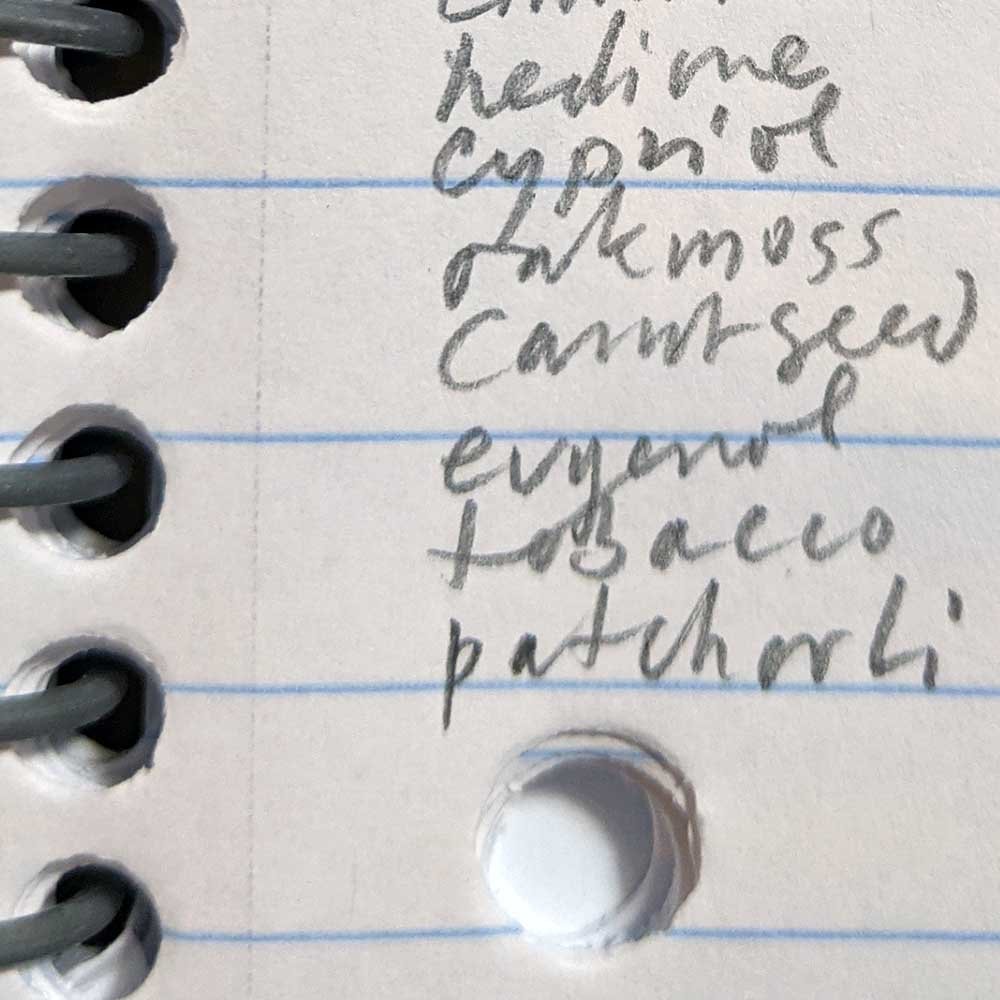 hedione
cypriol
oakmoss
carrot seed
eugenol
tobacco
patchouli